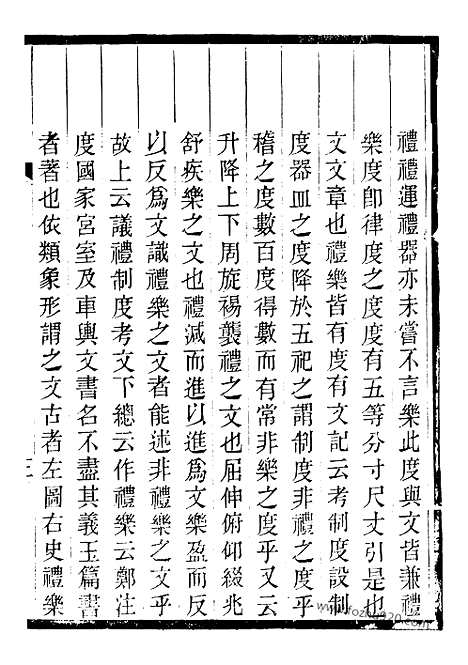 禮禮運禮器亦未嘗不言樂此度與文皆兼禮
樂度卽律度之度度有五等分寸尺丈引是也
文文章也禮樂皆有度有文記云考制度設制
度器皿之度降於五祀之謂制度非禮之度乎
稽之度數百度得數而有常非樂之度乎又云
升降上下周旋裼襲禮之文也屈伸俯仰綴兆
舒疾樂之文也禮減而進以進爲文樂盈而反
以反爲文識禮樂之文者能述非禮樂之文乎
故上云議禮制度考文下總云作禮樂云鄭注
度國家宮室及車輿文書名不盡其義玉篇書
者著也依類象形謂之文古者左圖右史禮樂
三